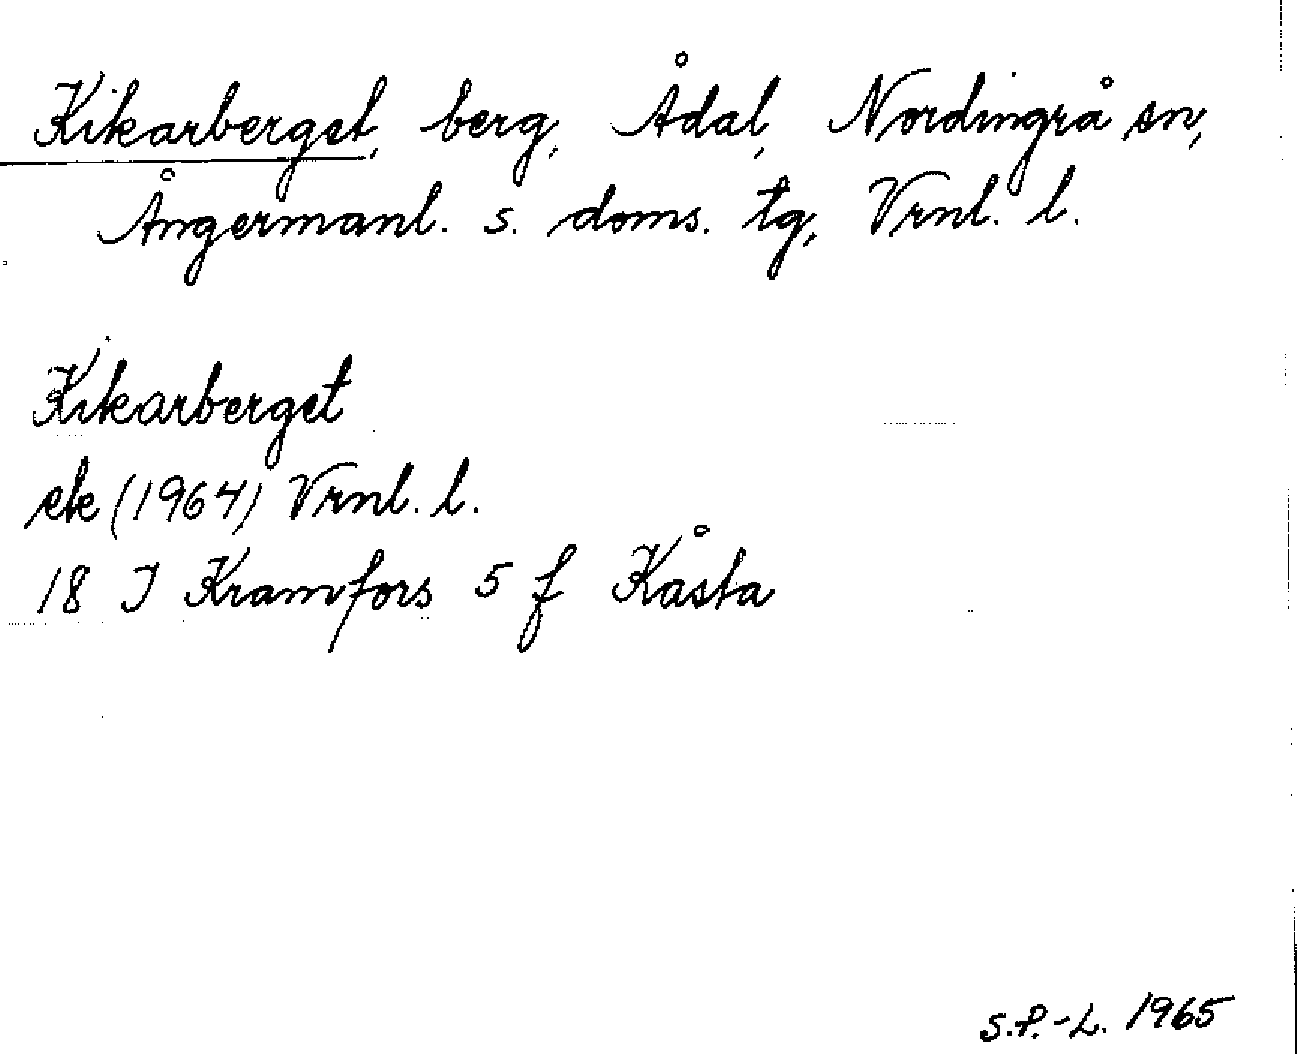 Kikarberget, berg, Ådal, Nordingrå sn,
Ångermanl. s. doms. tg, Vrnl. l.
Kikarberget
ek (1964) Vrnl. l.
18 I Kramfors 5 f Kåsta
S.P.-L. 1965